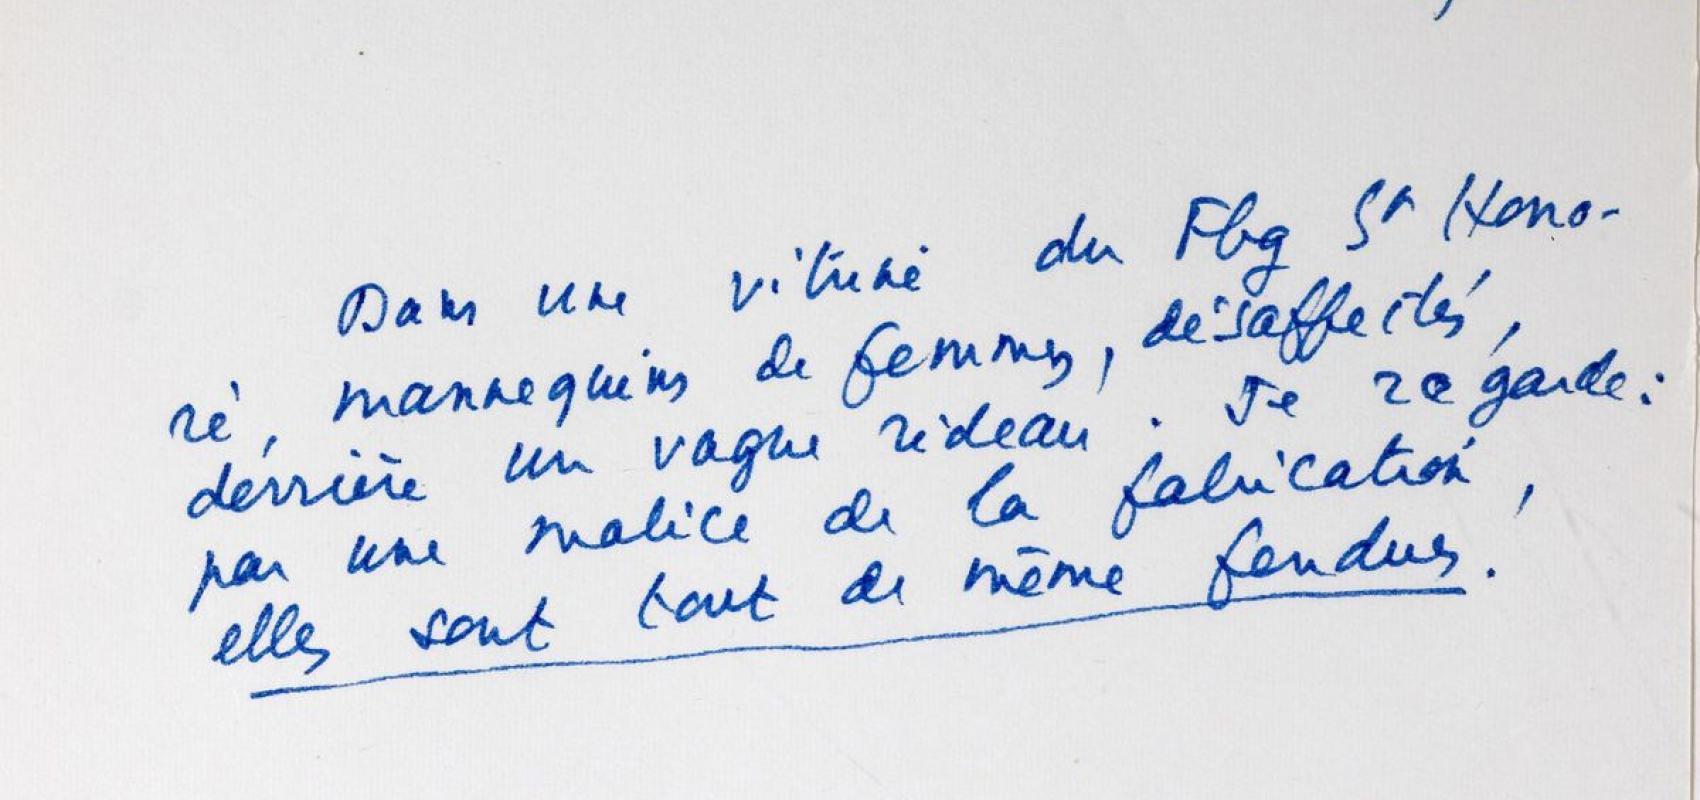 Dans une vitrine du Fbg St Hono-
ré, mannequins de femmes, désaffectés,
derrière un vague rideau. Je regarde:
par une malice de la fabrication,
elles sont tout de même fendues.